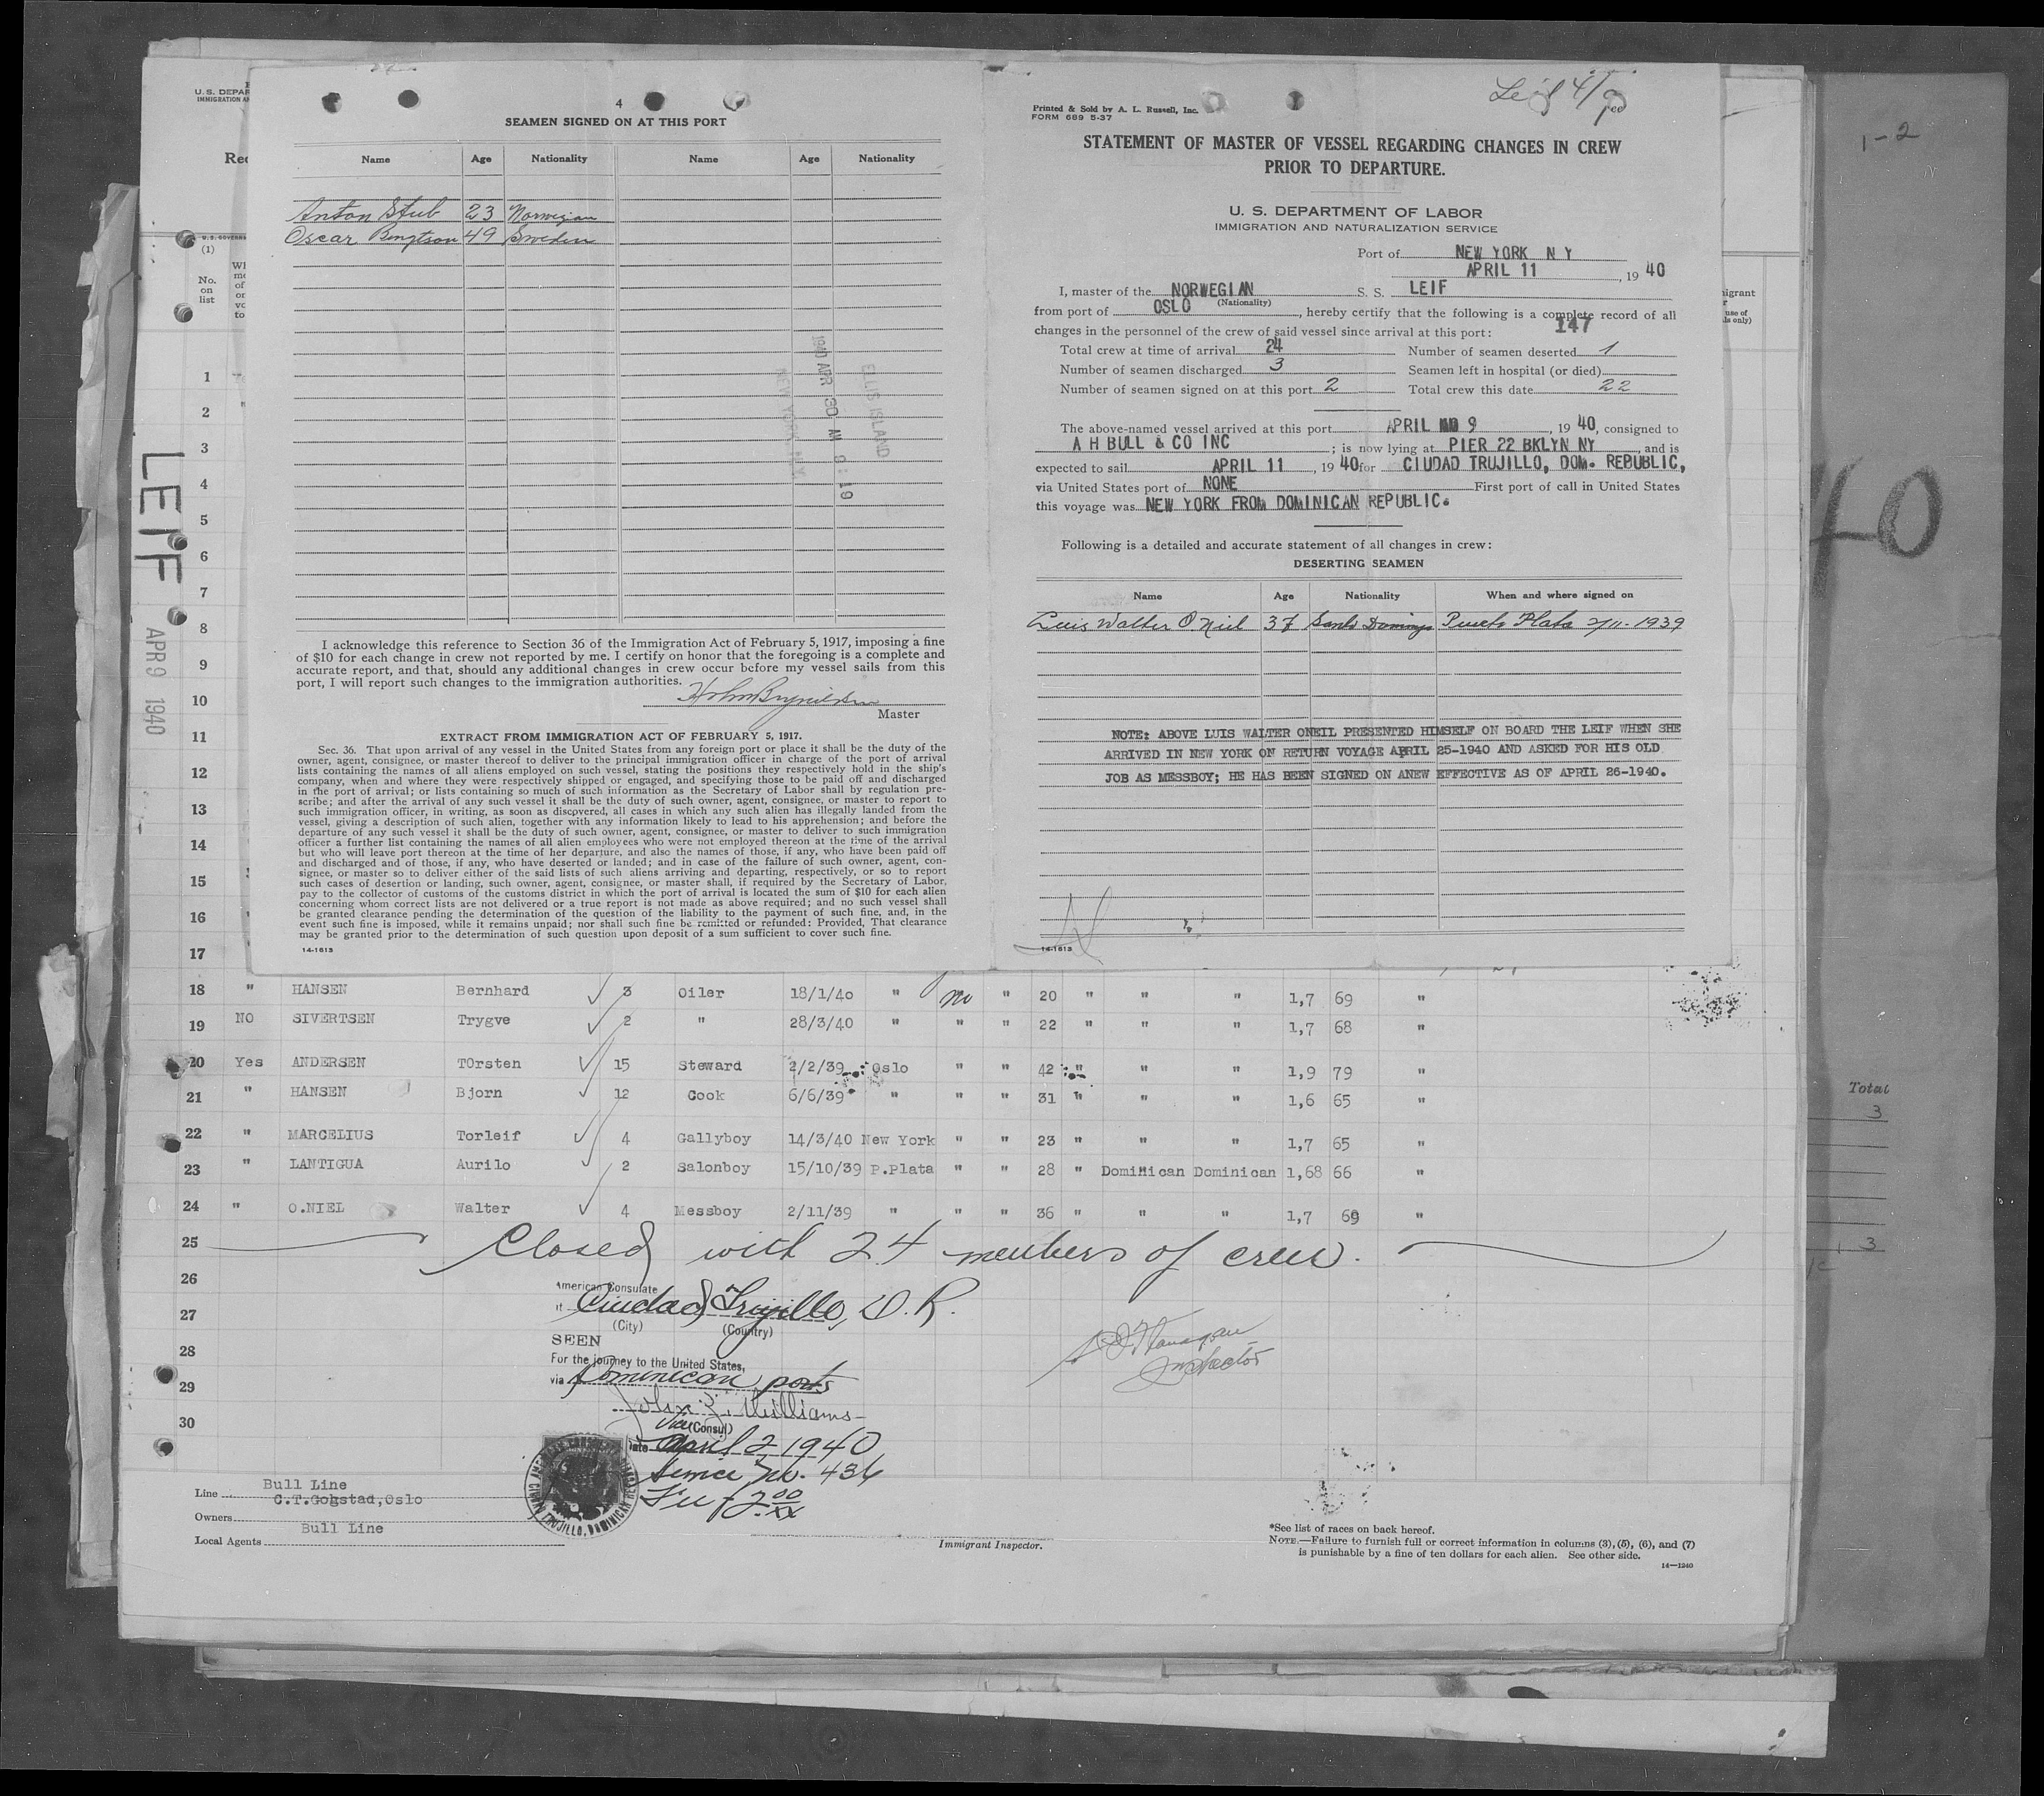 U. S. DEPAR
IMMIGRATION AN
Rec
U. S. GOVERN
(1)
No.
on
list
Wh
me
of
or
vo
to
LEIF
APR 9 1940
4
SEAMEN SIGNED ON AT THIS PORT
Name Age Nationality Name Age Nationality
Anton Stub 23 Norwegian
Oscar Bengtson 49 Sweden
1940 APR 30 AM 8:19
ELLIS ISLAND
NEW YORK, N.Y.
I acknowledge this reference to Section 36 of the Immigration Act of February 5, 1917, imposing a fine
of $10 for each change in crew not reported by me. I certify on honor that the foregoing is a complete and
accurate report, and that, should any additional changes in crew occur before my vessel sails from this
port, I will report such changes to the immigration authorities.
Master
EXTRACT FROM IMMIGRATION ACT OF FEBRUARY 5, 1917.
Sec. 36. That upon arrival of any vessel in the United States from any foreign port or place it shall be the duty of the
owner, agent, consignee, or master thereof to deliver to the principal immigration officer in charge of the port of arrival
lists containing the names of all aliens employed on such vessel, stating the positions they respectively hold in the ship's
company, when and where they were respectively shipped or engaged, and specifying those to be paid off and discharged
in the port of arrival; or lists containing so much of such information as the Secretary of Labor shall by regulation pre-
scribe; and after the arrival of any such vessel it shall be the duty of such owner, agent, consignee, or master to report to
such immigration officer, in writing, as soon as discovered, all cases in which any such alien has illegally landed from the
vessel, giving a description of such alien, together with any information likely to lead to his apprehension; and before the
departure of any such vessel it shall be the duty of such owner, agent, consignee, or master to deliver to such immigration
officer a further list containing the names of all alien employees who were not employed thereon at the time of the arrival
but who will leave port thereon at the time of her departure, and also the names of those, if any, who have been paid off
and discharged and of those, if any, who have deserted or landed; and in case of the failure of such owner, agent, con-
signee, or master so to deliver either of the said lists of such aliens arriving and departing, respectively, or so to report
such cases of desertion or landing, such owner, agent, consignee, or master shall, if required by the Secretary of Labor,
pay to the collector of customs of the customs district in which the port of arrival is located the sum of $10 for each alien
concerning whom correct lists are not delivered or a true report is not made as above required; and no such vessel shall
be granted clearance pending the determination of the question of the liability to the payment of such fine, and, in the
event such fine is imposed, while it remains unpaid; nor shall such fine be remitted or refunded: Provided, That clearance
may be granted prior to the determination of such question upon deposit of a sum sufficient to cover such fine.
14-1613
Leif 4/9
Printed & Sold by A. L. Russell, Inc.
FORM 689 5-37
STATEMENT OF MASTER OF VESSEL REGARDING CHANGES IN CREW
PRIOR TO DEPARTURE.
U. S. DEPARTMENT OF LABOR
IMMIGRATION AND NATURALIZATION SERVICE
Port of NEW YORK N Y
APRIL 11, 19 40
I, master of the NORWEGIAN S. S. LEIF
(Nationality)
from port of OSLO, hereby certify that the following is a complete record of all
changes in the personnel of the crew of said vessel since arrival at this port: 147
Total crew at time of arrival 24 Number of seamen deserted 1
Number of seamen discharged 3 Seamen left in hospital (or died)
Number of seamen signed on at this port 2 Total crew this date 22
The above-named vessel arrived at this port APRIL 9, 19 40, consigned to
A H BULL & CO INC; is now lying at PIER 22 BKLYN NY, and is
expected to sail APRIL 11, 19 40 for CIUDAD TRUJILLO, DOM. REPUBLIC,
via United States port of NONE First port of call in United States
this voyage was NEW YORK FROM DOMINICAN REPUBLIC.
Following is a detailed and accurate statement of all changes in crew:
DESERTING SEAMEN
Name Age Nationality When and where signed on
Luis Walter O Niel 37 Santo Domingo Puerto Plata 2/11-1939
NOTE: ABOVE LUIS WALTER ONEIL PRESENTED HIMSELF ON BOARD THE LEIF WHEN SHE
ARRIVED IN NEW YORK ON RETURN VOYAGE APRIL 25-1940 AND ASKED FOR HIS OLD
JOB AS MESSBOY; HE HAS BEEN SIGNED ON ANEW EFFECTIVE AS OF APRIL 26-1940.
14-1613
1-2
40
migrant
r
use of
ls only)
Total
3
3
1
2
3
4
5
6
7
8
9
10
11
12
13
14
15
16
17
18 " HANSEN Bernhard 3 Oiler 18/1/40 " no " 20 " " " 1,7 69 "
19 NO SIVERTSEN Trygve 2 " 28/3/40 " " " 22 " " " 1,7 68 "
20 Yes ANDERSEN TOrsten 15 Steward 2/2/39 Oslo " " 42 " " " 1,9 79 "
21 " HANSEN Bjorn 12 Cook 6/6/39 " " " 31 " " " 1,6 65 "
22 " MARCELIUS Torleif 4 Gallyboy 14/3/40 New York " " 23 " " " 1,7 65 "
23 " LANTIGUA Aurilo 2 Salonboy 15/10/39 P.Plata " " 28 " Dominican Dominican 1,68 66 "
24 " O.NIEL Walter 4 Messboy 2/11/39 " " " 36 " " " 1,7 69 "
25 Closed with 24 members of crew.
26
27
28
29
30
American Consulate
at Ciudad Trujillo, D.R.
(City) (Country)
SEEN
For the journey to the United States,
via Dominican ports
John F. Williams
Vice (Consul)
Date April 2 1940
Service No. 436
Fee $2 00/xx
Inspector
Line Bull Line
Owners C.T.Gogstad,Oslo
Local Agents Bull Line
Immigrant Inspector.
*See list of races on back hereof.
NOTE.—Failure to furnish full or correct information in columns (3), (5), (6), and (7)
is punishable by a fine of ten dollars for each alien. See other side.
14—1240